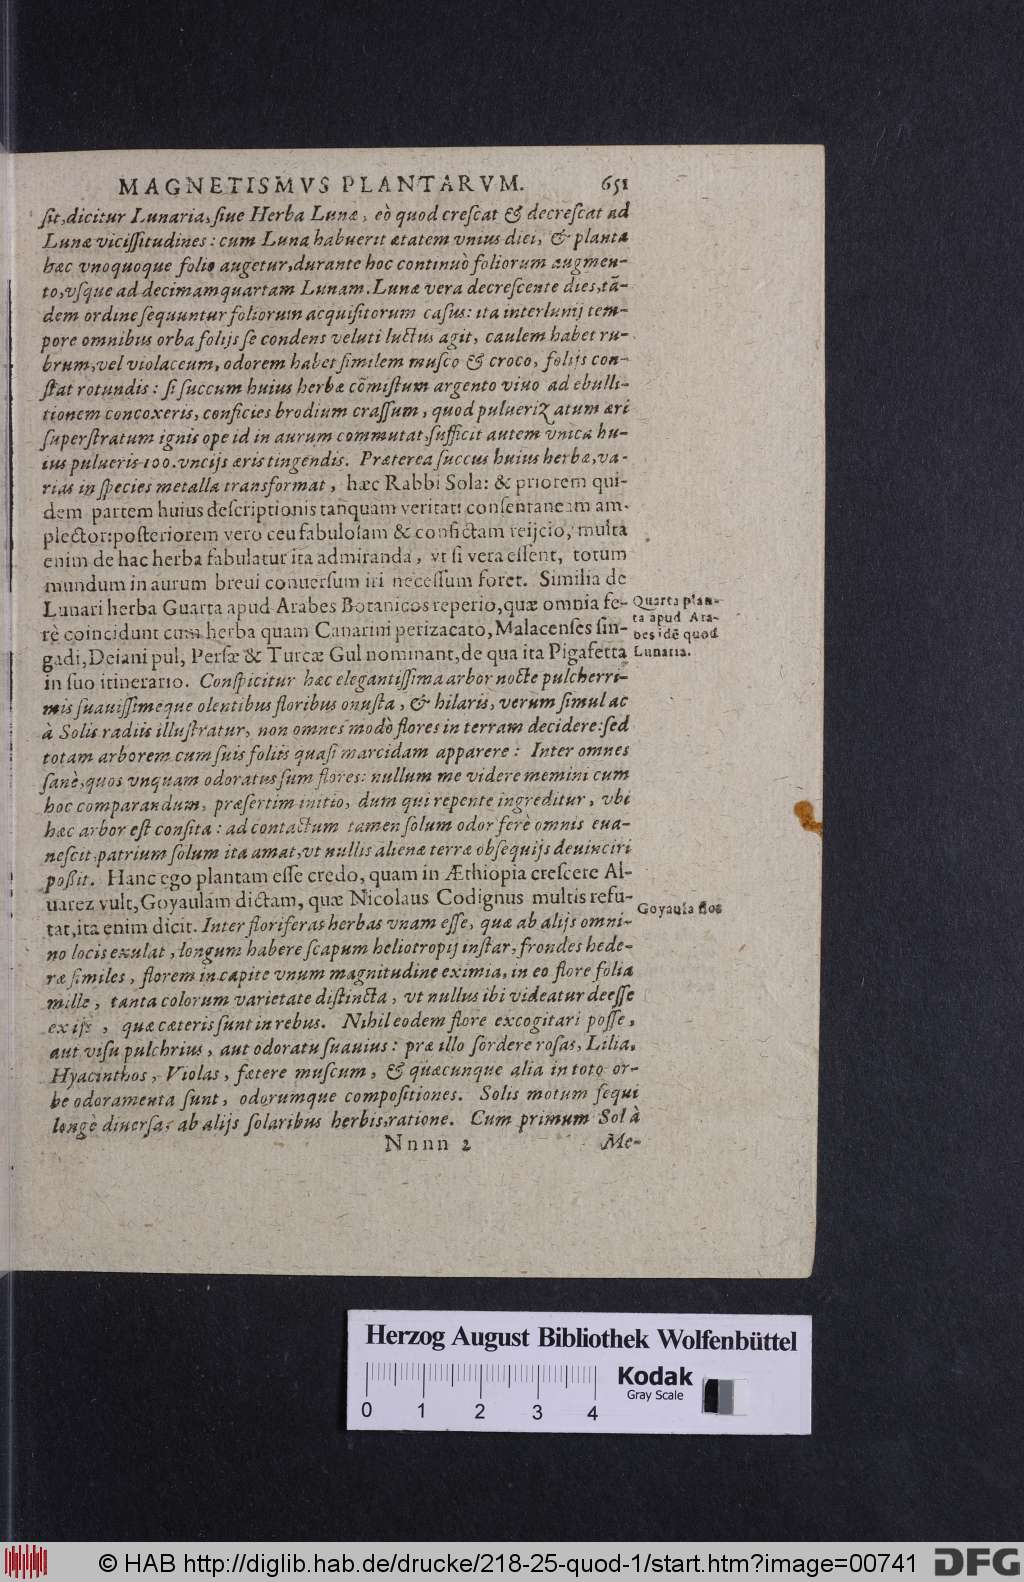 MAGNETISMVS PLANTARVM. 651
ſit, dicitur Lunaria, ſiue Herba Lunæ, eò quod creſcat & decreſcat ad
Lunæ viciſſitudines: cum Luna habuerit ætatem vnius diei, & planta
hæc vnoquoque folio augetur, durante hoc continuò foliorum augmen-
to, vſque ad decimamquartam Lunam. Lunæ vera decreſcente dies, tã-
dem ordine ſequuntur foliorum acquiſitorum caſus: ita interlunij tem-
pore omnibus orba folijs ſe condens veluti luctus agit, caulem habet ru-
brum, vel violaceum, odorem habet ſimilem muſco & croco, folijs con-
ſtat rotundis: ſi ſuccum huius herbæ cõmiſtum argento viuo ad ebulli-
tionem concoxeris, conficies brodium craſſum, quod pulueriz atum æri
ſuperſtratum ignis ope id in aurum commutat, ſufficit autem vnica hu-
ius pulueris 100. vncijs æris tingendis. Præterea ſuccus huius herbæ, va-
rias in ſpecies metalla transformat, hæc Rabbi Sola: & priorem qui-
dem partem huius deſcriptionis tanquam veritati conſentaneam am-
plector: poſteriorem vero ceu fabuloſam & confictam reijcio, multa
enim de hac herba fabulatur ita admiranda, vt ſi vera eſſent, totum
mundum in aurum breui conuerſum iri neceſſum foret. Similia de
Lunari herba Guarta apud Arabes Botanicos reperio, quæ omnia fe-
rè coincidunt cum herba quam Canarini perizacatò, Malacenſes ſin-
gadi, Deiani pul, Perſæ & Turcæ Gul nominant, de qua ita Pigafetta
in ſuo itinerario. Conſpicitur hæc elegantiſſima arbor nocte pulcherri-
mis ſuauiſſimeque olentibus floribus onuſta, & hilaris, verum ſimul ac
à Solis radiis illuſtratur, non omnes modò flores in terram decidere: ſed
totam arborem cum ſuis foliis quaſi marcidam apparere: Inter omnes
ſanè, quos vnquam odoratus ſum flores: nullum me videre memini cum
hoc comparandum, præſertim initio, dum qui repente ingreditur, vbi
hæc arbor eſt conſita: ad contactum tamen ſolum odor ferè omnis eua-
neſcit, patrium ſolum ita amat, vt nullis alienæ terræ obſequijs deuinciri
poßit. Hanc ego plantam eſſe credo, quam in Æthiopia creſcere Al-
uarez vult, Goyaulam dictam, quæ Nicolaus Codignus multis refu-
tat, ita enim dicit. Inter floriferas herbas vnam eſſe, quæ ab alijs omni-
no locis exulat, longum habere ſcapum heliotropij inſtar, frondes hede-
ræ ſimiles, florem in capite vnum magnitudine eximia, in eo flore folia
mille, tanta colorum varietate diſtincta, vt nullus ibi videatur deeſſe
ex ijs, quæ cæteris ſunt in rebus. Nihil eodem flore excogitari poſſe,
aut viſu pulchrius, aut odoratu ſuauius: præ illo ſordere roſas, Lilia,
Hyacinthos, Violas, fætere muſcum, & quæcunque alia in toto or-
be odoramenta ſunt, odorumque compoſitiones. Solis motum ſequi
longè diuerſa, ab alijs ſolaribus herbis, ratione. Cum primum Sol à
Nnnn 2 Me-
Quarta plan-
ta apud Ara-
bes idē quod
Lunaria.
Goyaula flos
Herzog August Bibliothek Wolfenbüttel
0 1 2 3 4
Kodak
Gray Scale
© HAB http://diglib.hab.de/drucke/218-25-quod-1/start.htm?image=00741
DFG